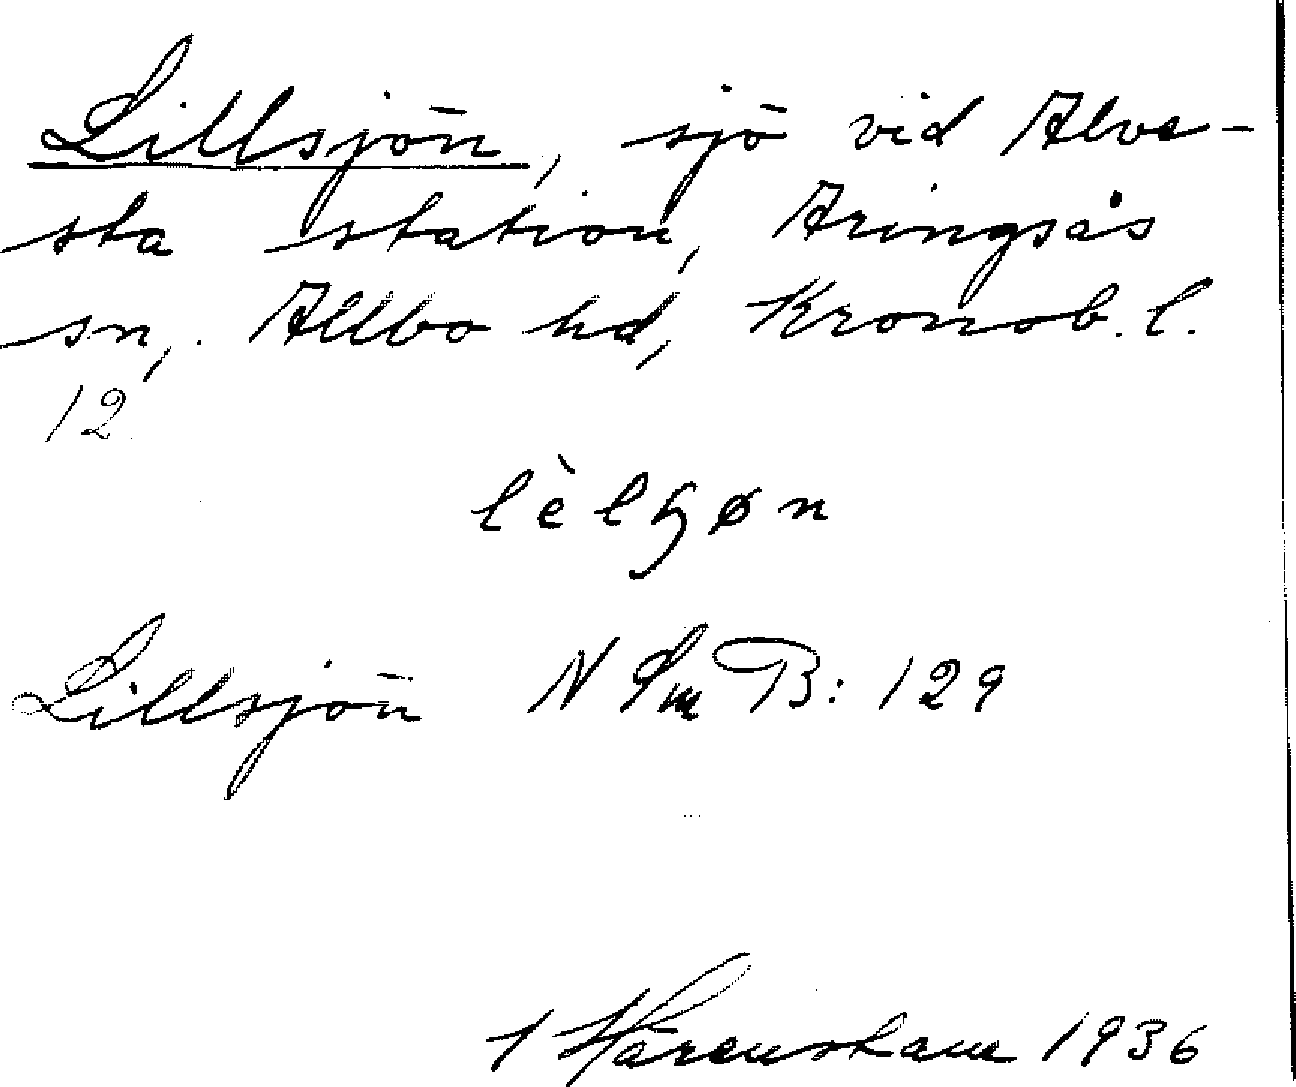 Lillsjön, sjö vid Alve-
sta station, Aringsås
sn, Allbo hd, Kronob. l.
12
lèlɧøn
Lillsjön N Sm B: 129
1936